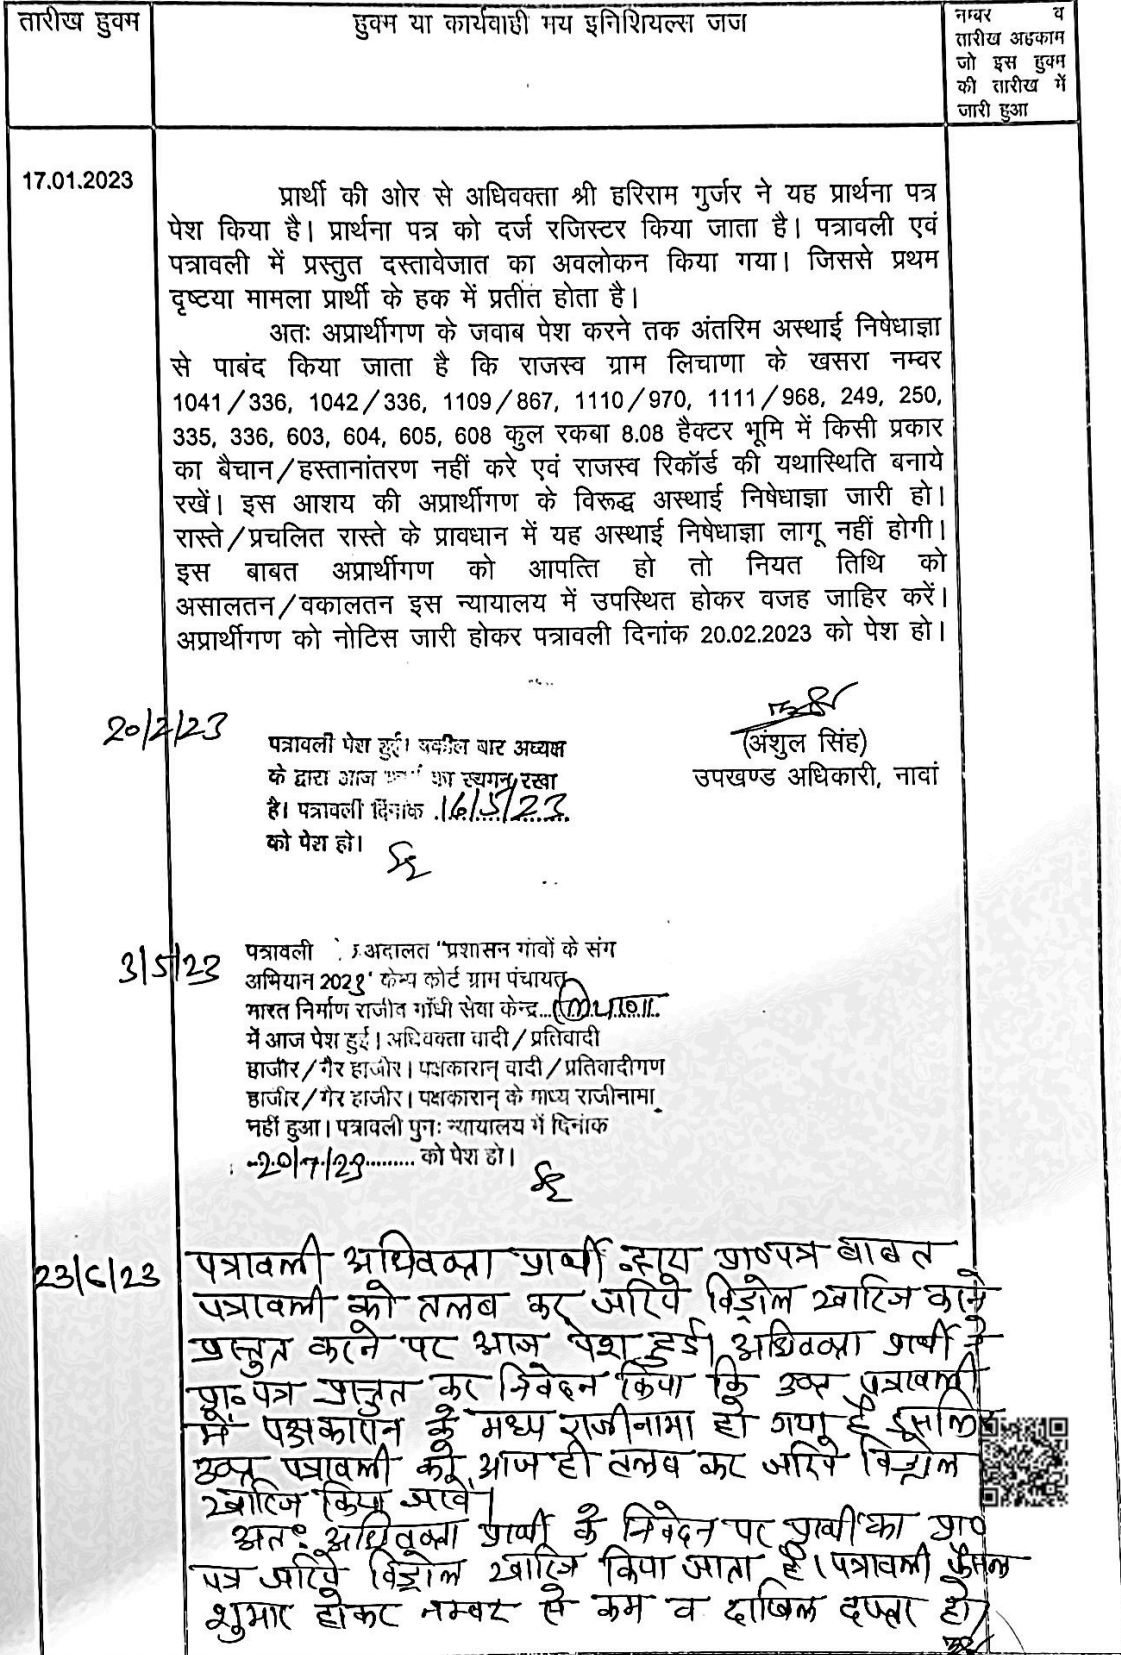 तारीख हुक्म
हुक्म या कार्यवाही मय इनिशियल्स जज
नम्बर व
तारीख अहकाम
जो इस हुक्म
की तारीख में
जारी हुआ
17.01.2023
प्रार्थी की ओर से अधिवक्ता श्री हरिराम गुर्जर ने यह प्रार्थना पत्र
पेश किया है। प्रार्थना पत्र को दर्ज रजिस्टर किया जाता है। पत्रावली एवं
पत्रावली में प्रस्तुत दस्तावेजात का अवलोकन किया गया। जिससे प्रथम
दृष्टया मामला प्रार्थी के हक में प्रतीत होता है।
अतः अप्रार्थीगण के जवाब पेश करने तक अंतरिम अस्थाई निषेधाज्ञा
से पाबंद किया जाता है कि राजस्व ग्राम लिचाणा के खसरा नम्बर
1041/336, 1042/336, 1109/867, 1110/970, 1111/968, 249, 250,
335, 336, 603, 604, 605, 608 कुल रकबा 8.08 हैक्टर भूमि में किसी प्रकार
का बैचान/हस्तानांतरण नहीं करे एवं राजस्व रिकॉर्ड की यथास्थिति बनाये
रखें। इस आशय की अप्रार्थीगण के विरूद्ध अस्थाई निषेधाज्ञा जारी हो।
रास्ते/प्रचलित रास्ते के प्रावधान में यह अस्थाई निषेधाज्ञा लागू नहीं होगी।
इस बाबत अप्रार्थीगण को आपत्ति हो तो नियत तिथि को
असालतन/वकालतन इस न्यायालय में उपस्थित होकर वजह जाहिर करें।
अप्रार्थीगण को नोटिस जारी होकर पत्रावली दिनांक 20.02.2023 को पेश हो।
(अंशुल सिंह)
उपखण्ड अधिकारी, नावां
20/2/23
पत्रावली पेश हुई। वकील बार अध्यक्ष
के द्वारा आज का स्थगन रखा
है। पत्रावली दिनांक 16/5/23
को पेश हो।
3/5/23
पत्रावली अदालत "प्रशासन गांवों के संग
अभियान 2023" केम्प कोर्ट ग्राम पंचायत
भारत निर्माण राजीव गाँधी सेवा केन्द्र...लिचाणा
में आज पेश हुई। अधिवक्ता वादी/प्रतिवादी
हाजीर/गैर हाजीर। पक्षकारान् वादी/प्रतिवादीगण
हाजीर/गैर हाजीर। पक्षकारान् के माध्य राजीनामा
नहीं हुआ। पत्रावली पुनः न्यायालय में दिनांक
20/7/23......... को पेश हो।
23/6/23
पत्रावली अधिवक्ता प्रार्थी द्वारा प्रा०पत्र बाबत
पत्रावली को तलब कर जरिये विड्रोल खारिज करने
प्रस्तुत करने पर आज पेश हुई। अधिवक्ता प्रार्थी ने
प्रा० पत्र प्रस्तुत कर निवेदन किया कि उक्त पत्रावली
में पक्षकारान के मध्य राजीनामा हो गया है इसलिए
उक्त पत्रावली को आज ही तलब कर जरिये विड्रोल
खारिज किया जावें।
अतः अधिवक्ता प्रार्थी के निवेदन पर प्रार्थी का प्रा०
पत्र जरिये विड्रोल खारिज किया जाता है। पत्रावली फैसल
शुमार होकर नम्बर से कम व दाखिल दफ्तर हो।